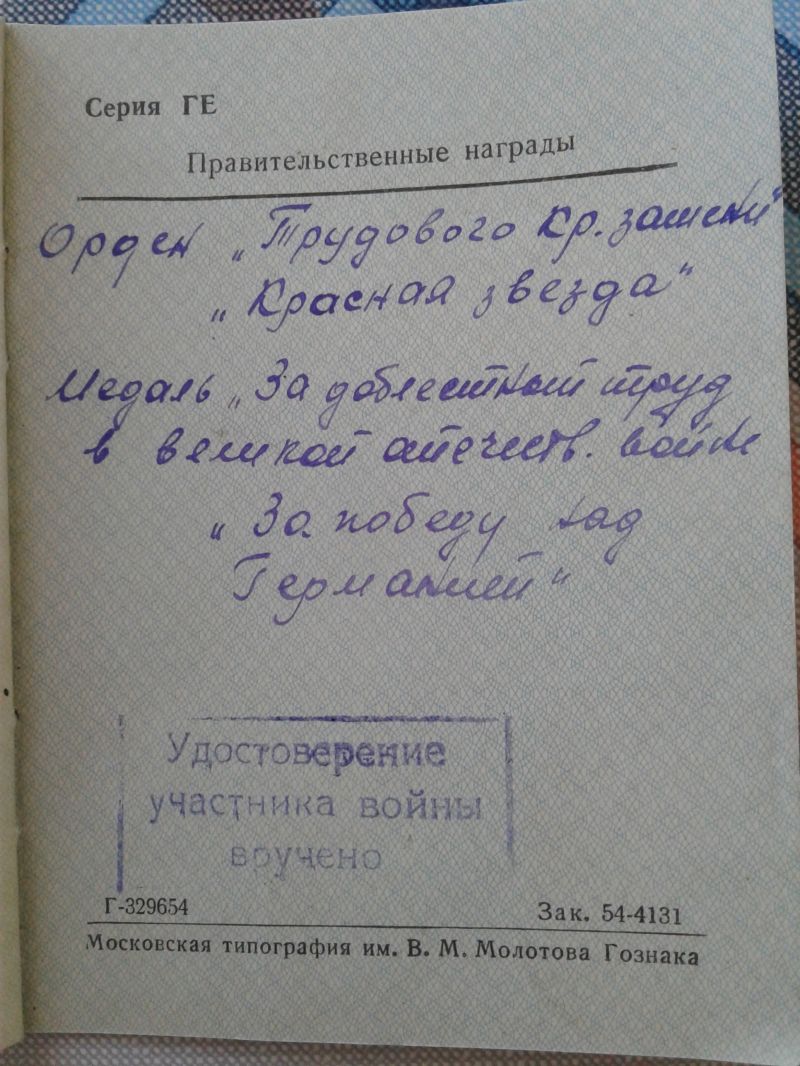 Серия ГЕ
Правительственные награды
Орден „Трудового Кр. замени"
„Красная звезда"
Медаль „За доблестный труд
в великой отечеств. войне
„За победу над
Германией"
Удостоверение
участника войны
вручено
Г-329654
Зак. 54-4131
Московская типография им. В. М. Молотова Гознака